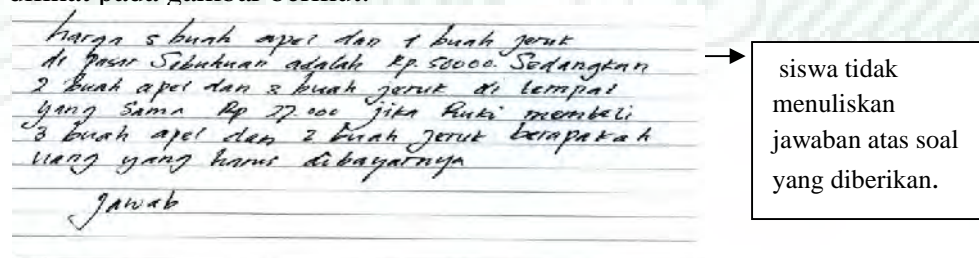 harga 5 buah apel dan 1 buah jeruk
di pasar Sibuhuan adalah Rp. 50000. Sedangkan
2 buah apel dan 3 buah jeruk di tempat
yang sama Rp 27.000 jika Ruki membeli
3 buah apel dan 2 buah jeruk berapakah
uang yang harus dibayarnya
Jawab
siswa tidak
menuliskan
jawaban atas soal
yang diberikan.